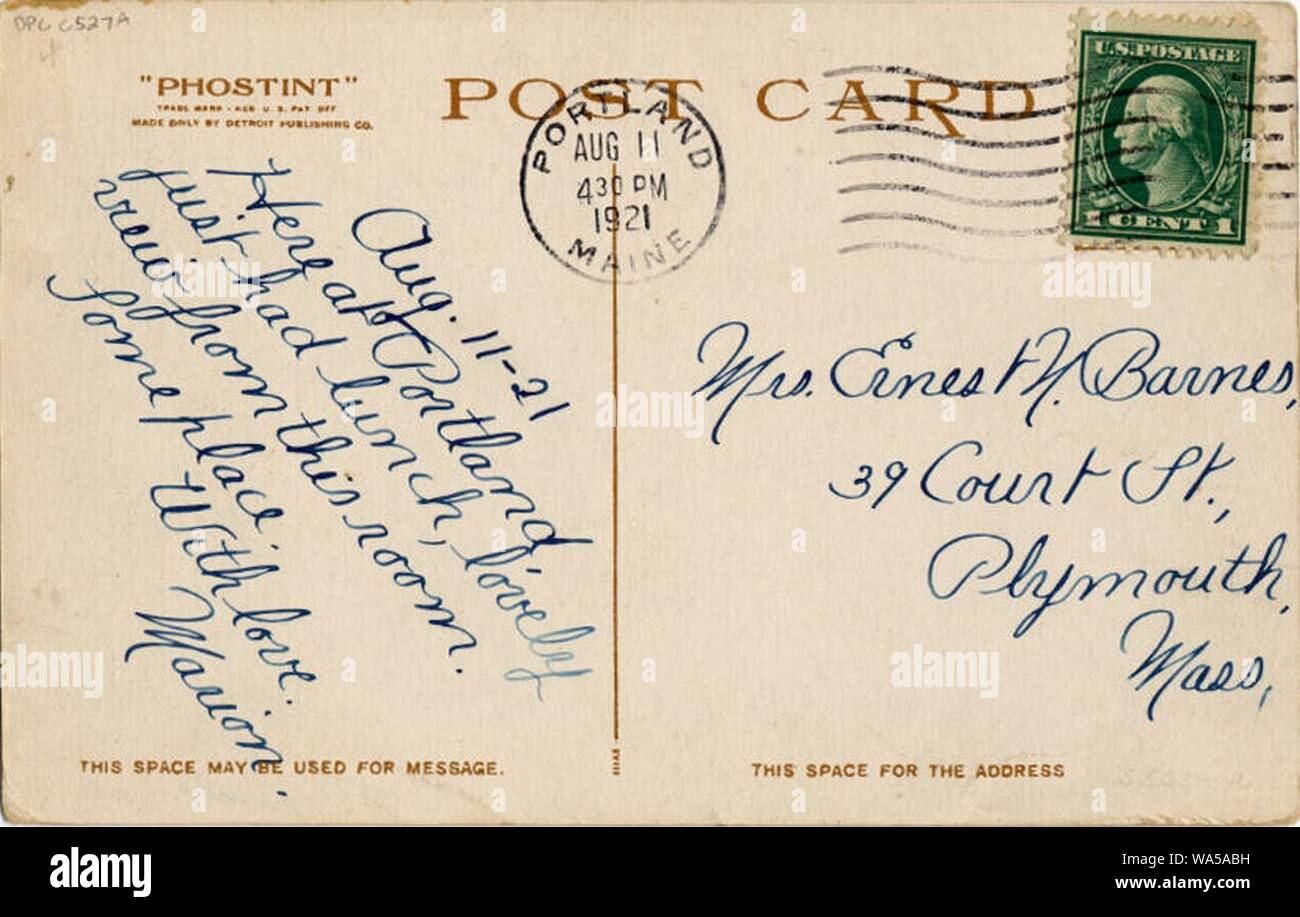 DPC C527A
"PHOSTINT"
TRADE MARK - REG U. S. PAT OFF
MADE ONLY BY DETROIT PUBLISHING CO.
POST CARD
PORTLAND
AUG 11
430 PM
1921
MAINE
U.S. POSTAGE
1 CENT 1
Aug. 11-21
Here at Portland
just had lunch, lovely
view from this room.
Some place.
With love.
Marion.
Mrs. Ernest N. Barnes,
39 Court St.,
Plymouth,
Mass,
THIS SPACE MAY BE USED FOR MESSAGE.
THIS SPACE FOR THE ADDRESS
alamy
alamy
WA5ABH
www.alamy.com